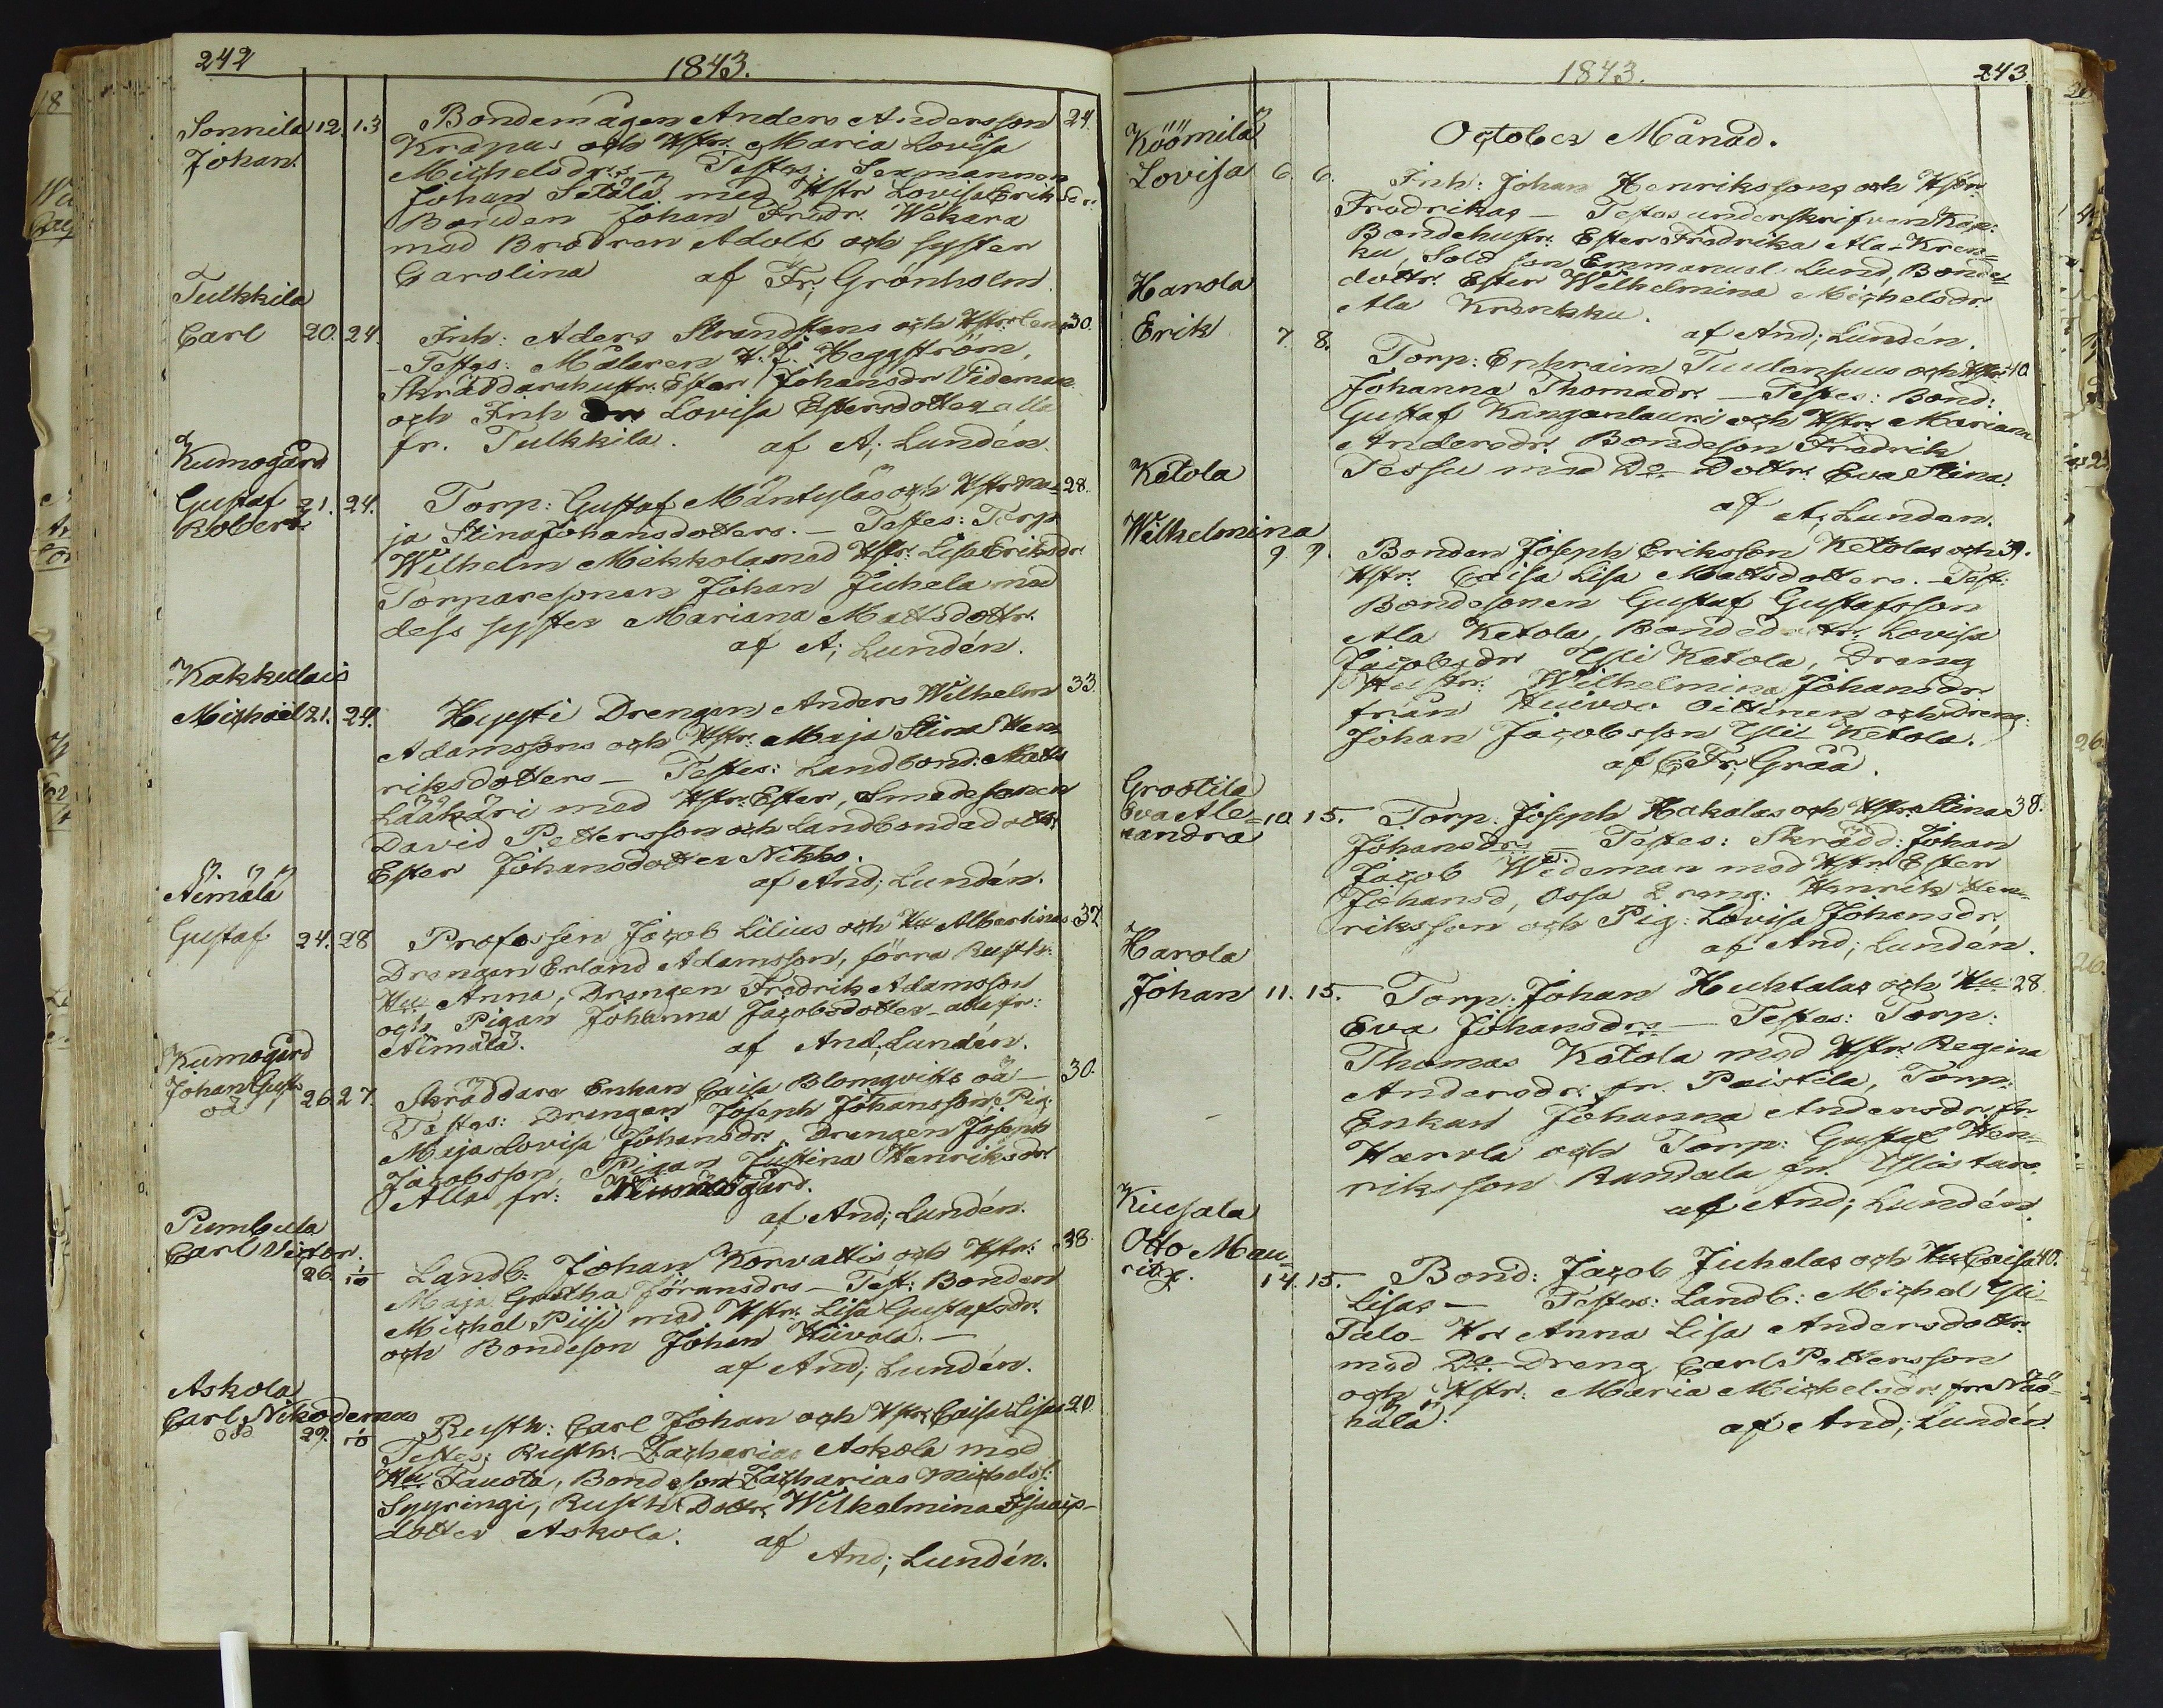 242
1843.
Sonnila 12. 13 Bondemågen Anders Andersson 24.
Johan. Krapus och Hstr. Maria Lovisa
Michelsdrs — Testes: Sexmannen
Johan Setälä med Hstr Lovisa Eriksdr.
Bonden Johan Fredr. Wakara
med Brodren Adolf och syster
Carolina af Fr; Grönholm.
Tulkkila
Carl 20. 24. Inh: Aders Strandstens och Hstr. Lenas 30.
— Testes: Målaren H. J. Heggström,
Skräddarehustr. Ester Johansdr Videman
och Inh Lovisa Estersdotter alla
fr. Tulkkila. af A; Lundén.
Kumogård
Gustaf 21. 24. Torp: Gustaf Mäntyläs och Hstr Ma= 28.
Robert ja Stina Johansdotters. — Testes: Torp
Wilhelm Mikkola med Hstr. Lisa Eriksdr
Torparesonen Johan Juhela med
dess syster Mariana Mattsdottr.
af A; Lundén.
Kakkulais
Michael 21. 24. Hyysti Drengen Anders Wilhelm 33.
Adamssons och Hstr: Maja Stina Hen=
riksdotters — Testes: Landbond: Matts
Lääkäri med Hstr. Ester, Smedesonen
David Pettersson och Landbondedottr
Ester Johansdotter Nikko.
af And; Lundén.
Äimälä
Gustaf 24. 28 Profossen Jacob Lilius och Hu Albertinas 32
Drengen Erland Adamsson, förra Rusth:
Hu Anna, Drengen Fredrik Adamsson
och Pigan Johanna Jacobsdotter — alla fr:
Äimälä. af And; Lundén.
Kumogård
Johan Gust: 26. 27. Skräddare Enkan Caisa Blomqvists oä — 30.
oä Testes: Drengen Joseph Johansson, Pig:
Maja Lovisa Johansdr. Drengen Joseph
Jacobsson, Pigan Justina Henriksdr
Alla fr: Kumogård.
af And; Lundén.
Pumbula
Carl Victor.
26. 1/10 Landb: Johan Korvattis och Hstr: 38.
Maja Gretha Göransdrs — Test: Bonden
Michel Piisi med Hstr. Lisa Gustafsdr.
och Bondeson Johan Hiivola. —
af And; Lundén.
Askola
Carl Nikodemus
29. 1/10 Rusth: Carl Johan och Hstr Caisa Lisas 20.
Testes: Rusth: Zacharias Askola med
Hu Fausta, Bondeson Zacharias Michelss:
Spyringi, Rusth: Dottr. Wilhelmina Isaacs-
dotter Askola. af
And; Lundén.
1843.
243
October Månad.
Köömilä
Lovisa 6. 6. Inh: Johan Henrikssons och Hstr.
Fredrikas — Testes underskrifven Kap:
Bondehustr. Ester Fredrika Ala-Kren=
ku, Sold son Emmanuel Lund, Bonde=
dottr. Ester Wilhelmina Michelsdr.
Ala Krenkku.
af And; Lundén.
Harola
Erik 7. 8. Torp: Ephraim Tuulensuus och Hstr. 40.
Johanna Thomadr. — Testes: Bond:
Gustaf Kanganlauri och Hstr. Mariana
Andersdr. Bondeson Fredrik
Tessu med Do Dottr. Eva Stina.
af
A; Lundan.
Ketola
Wilhelmina
9. 9. Bonden Joseph Eriksson Ketolas och 39.
Hstr. Caisa Lisa Mattsdotters. — Test:
Bondesonen Gustaf Gustafsson
Ala Ketola, Bondedottr. Lovisa
Jacobsdr Ylli Ketola, Dreng
Hustr. Wilhelmina Johansdr.
från Oittinen och Dreng:
Johan Jacobsson Yli Ketola.
af C; Fr; Gråå.
Grootila
Eva Ale= 10. 15. Torp: Joseph Hakalas och Hstr. Stinas 38.
xandra Johansdrs — Testes: Skrädd: Johan
Jacob Wideman med Hstr. Ester
Johansd, Ossa Dreng: Henrik Hen=
riksson och Pig: Lovisa Johansdr.
af And; Lundén.
Harola
Johan 11. 15. Torp: Johan Huhtalas och Hu 28.
Eva Johansdrs — Testes: Torp:
Thomas Ketola med Hstr. Regina
Andersdr. fr. Paistila, Torp:
Enkan Johanna Andersdr. fr.
Harola och Torp: Gustaf Hen=
riksson Randala fr. Ylistaro.
af And; Lundén.
Kiusala
Otto Mau=
ritz. 14. 15. Bond: Jacob Juhelas och Hu Caisa 40.
Lisas — Testes: Landb: Michel Yli=
Talo — Hr Anna Lisa Andersdottr.
med Do Dreng Carl Pettersson
och Hstr: Maria Michelsdr. fr. Nää=
hälä. af And; Lundén.